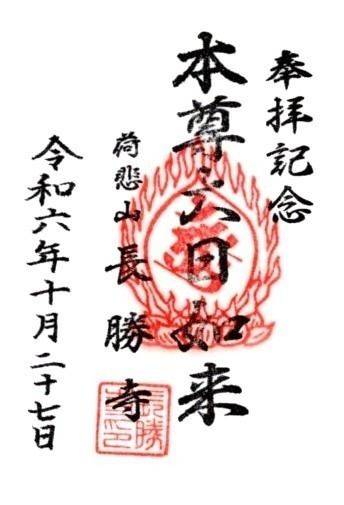 奉拝記念
本尊大日如来
荷悲山 長勝寺
令和六年十月二十七日
長勝
寺印